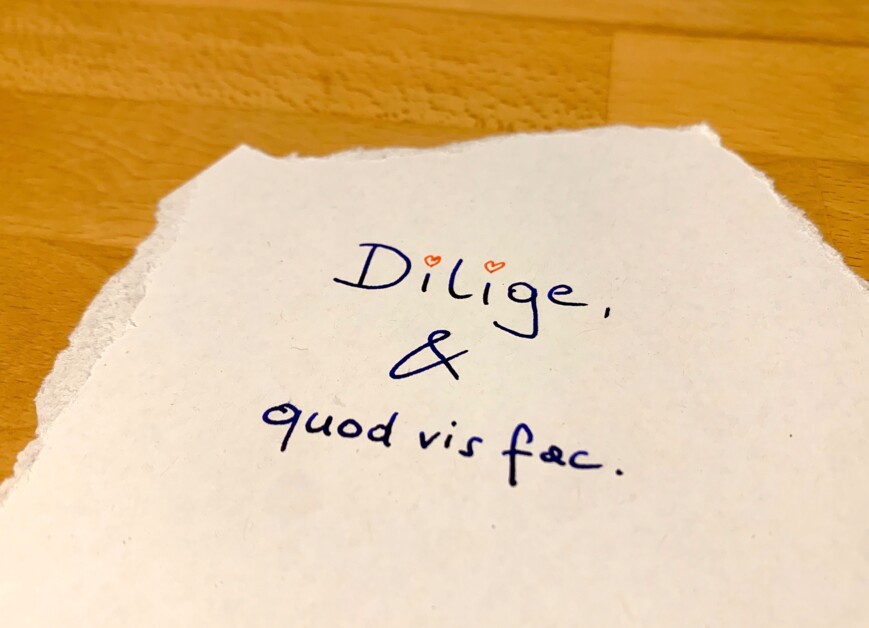 Dilige,
&
quod vis fac.